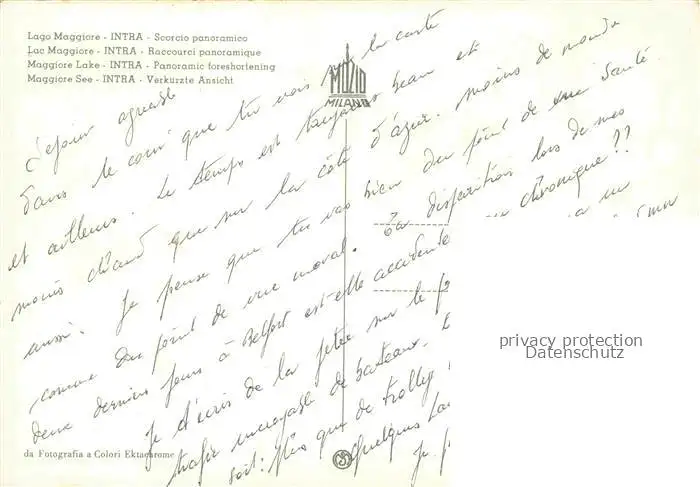 Lago Maggiore - INTRA - Scorcio panoramico
Lac Maggiore - INTRA - Raccourci panoramique
Maggiore Lake - INTRA - Panoramic foreshortening
Maggiore See - INTRA - Verkürzte Ansicht
MUZIO
MILANO
Séjour agréable
dans le coin que tu vois sur la carte
et ailleurs. Le temps est toujours beau et
moins chaud que sur la côte d'azur. Moins de monde
aussi. Je pense que tu vas bien du point de vue santé
comme du point de vue moral. Ta disparition lors de mes
deux derniers jours à Belfort est-elle accidente chronique??
Je t'écris de la jetée sur le
trafic incroyable de bateaux.
soit: plus que de trolley
Quelques
Je
privacy protection
Datenschutz
da Fotografia a Colori Ektachrome